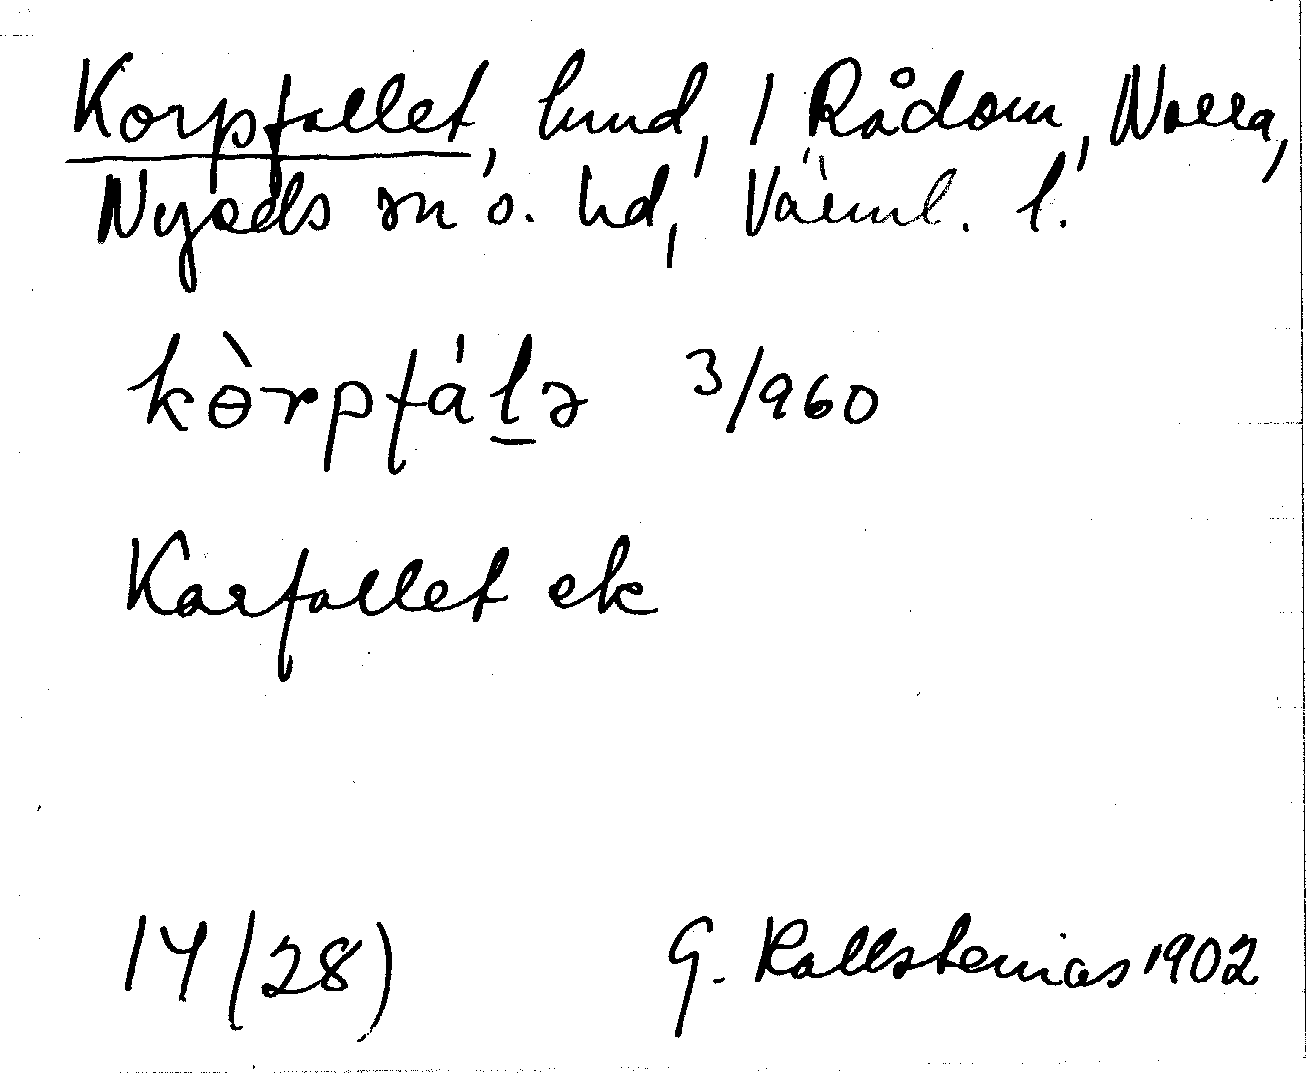 Korpfallet, lund, i Rådom, Norra,
Nyeds sn o. hd, Värml. l.
kɵ̀rpfál̠ə 3/960
Karfallet ek
14 (28)
G. Kallstenius 1902